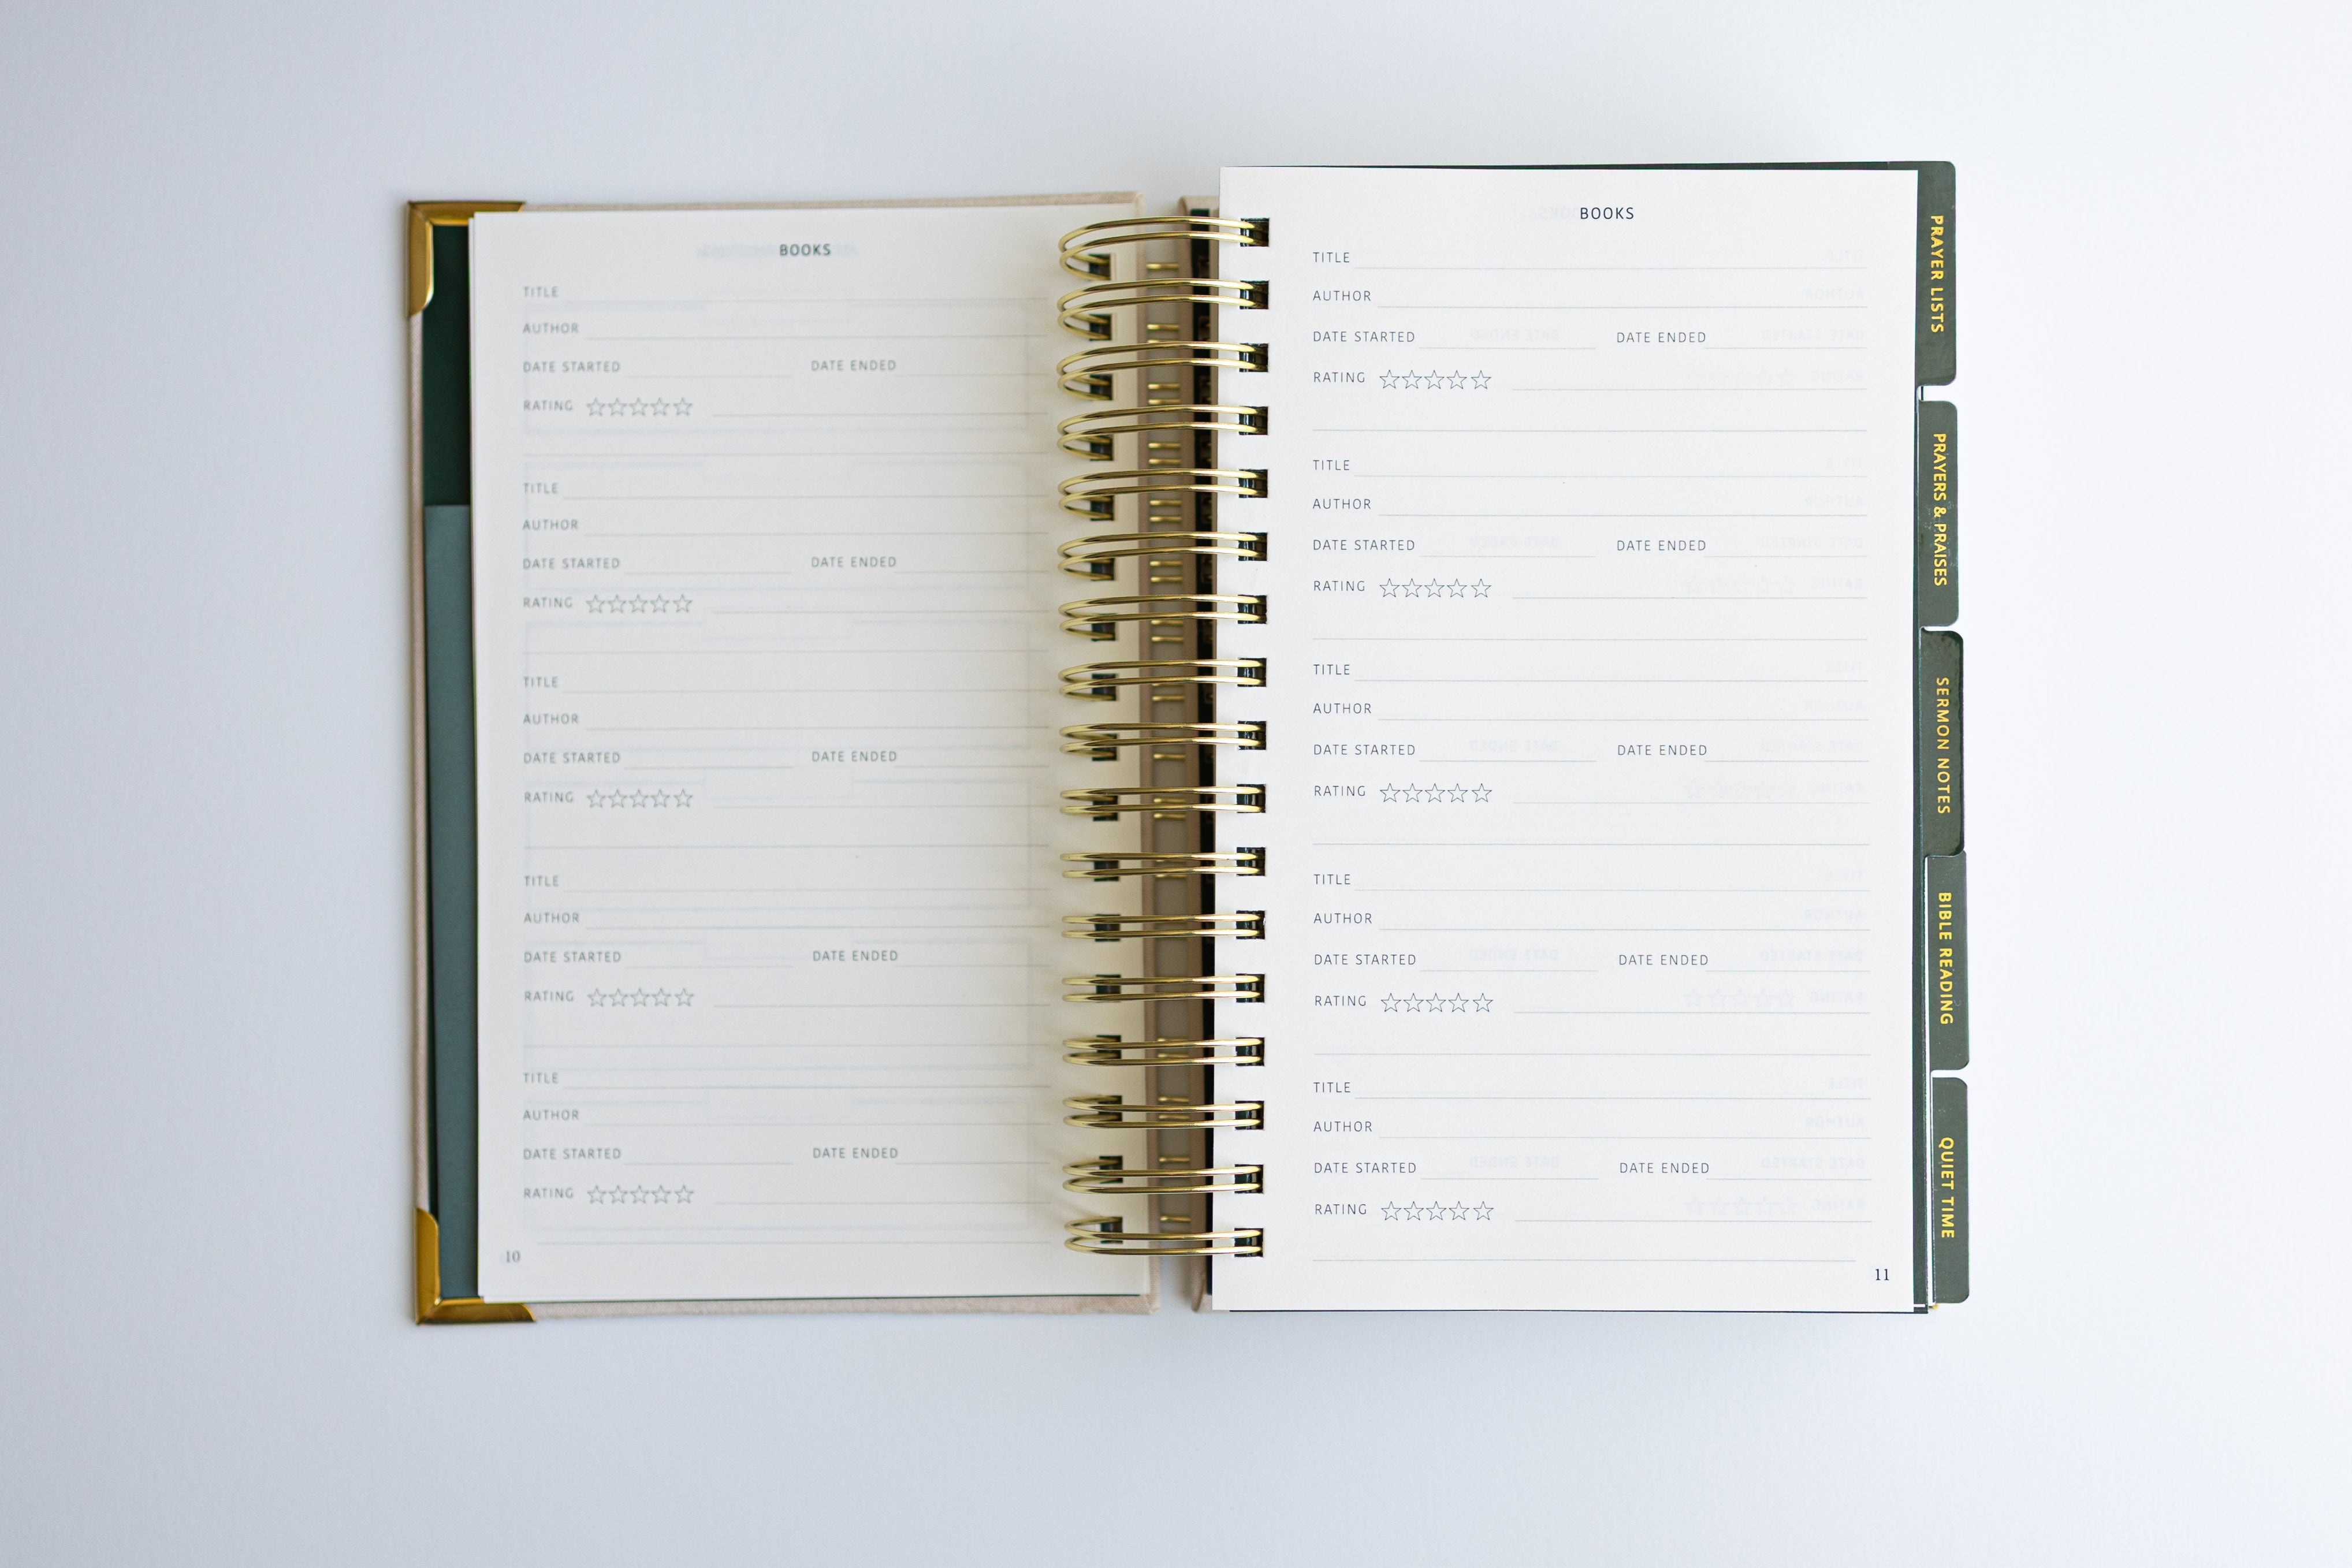 BOOKS
TITLE
AUTHOR
DATE STARTED DATE ENDED
RATING
TITLE
AUTHOR
DATE STARTED DATE ENDED
RATING
TITLE
AUTHOR
DATE STARTED DATE ENDED
RATING
TITLE
AUTHOR
DATE STARTED DATE ENDED
RATING
TITLE
AUTHOR
DATE STARTED DATE ENDED
RATING
10
BOOKS
TITLE
AUTHOR
DATE STARTED DATE ENDED
RATING
TITLE
AUTHOR
DATE STARTED DATE ENDED
RATING
TITLE
AUTHOR
DATE STARTED DATE ENDED
RATING
TITLE
AUTHOR
DATE STARTED DATE ENDED
RATING
TITLE
AUTHOR
DATE STARTED DATE ENDED
RATING
11
PRAYER LISTS
PRAYERS & PRAISES
SERMON NOTES
BIBLE READING
QUIET TIME